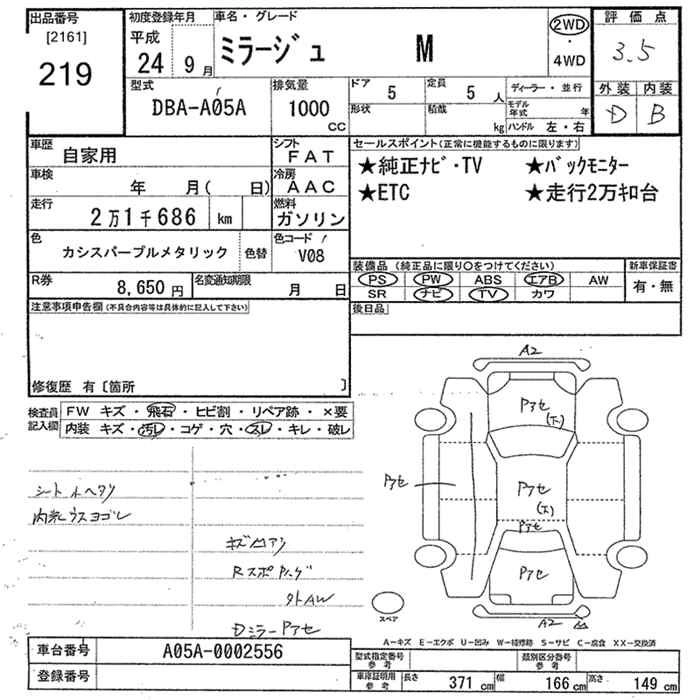 出品番号 初度登録年月 車名・グレード 評価点
[2161] 平成 2WD
219 24年9月 ミラージュ M ・ 3.5
4WD
型式 排気量 ドア 5 定員 5人 ディーラー・並行 外装 内装
DBA-A05A 1000 CC 形状 積載 kg モデル年式 年 D B
ハンドル 左・右
車歴 自家用 シフト FAT セールスポイント(正常に機能するものに限ります)
車検 年 月( 日) 冷房 AAC ★純正ナビ・TV ★バックモニター
走行 2万1千686 km 燃料 ガソリン ★ETC ★走行2万キロ台
色 カシスパープルメタリック 色替 色コード V08
装備品(純正品に限り〇をつけてください) 新車保証書
R券 8,650円 名変通知期限 月 日 PS PW ABS エアB AW 有・無
SR ナビ TV カワ
注意事項申告欄(不具合内容等は具体的に記入して下さい) 後日品
修復歴 有〔箇所 〕
検査員記入欄 FW キズ・飛石・ヒビ割・リペア跡・×要
内装 キズ・汚レ・コゲ・穴・スレ・キレ・破レ
A2
Pアセ
(下)
シートホヘタリ
Pアセ
内装ウスヨゴレ
Pアセ
Pアセ
Rスポ
Pアセ
外AW
スペア
A2
DミラーPアセ
A-キズ E-エクボ U-凹み W-補修跡 S-サビ C-腐食 XX-交換済
車台番号 A05A-0002556 型式指定番号 参考 類別区分番号 参考
登録番号 車庫証明用 参考 長さ 371cm 幅 166cm 高さ 149cm